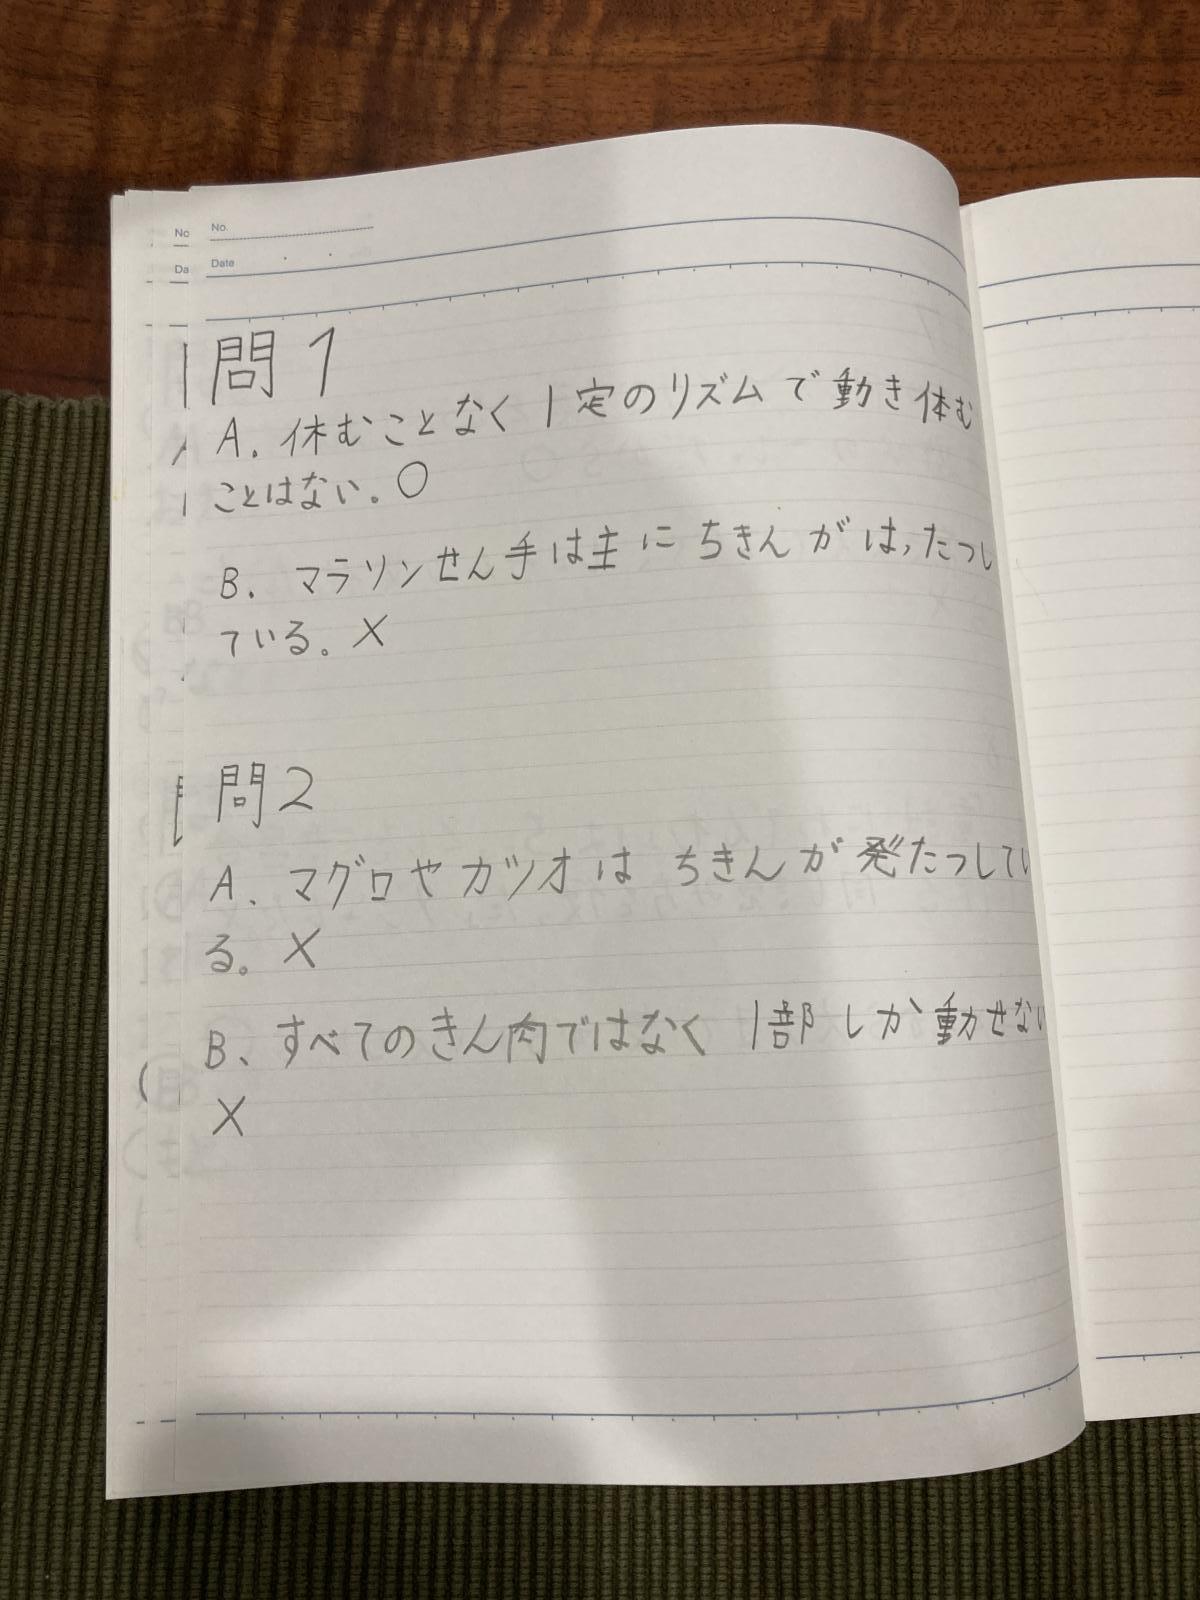 No.
Date
問1
A. 休むことなく1定のリズムで動き休む
ことはない。○
B. マラソンせん手は主にちきんがはったつし
ている。×
問2
A、マグロやカツオはちきんが発たつしてい
る。×
B、すべてのきん肉ではなく1部しか動せない
×